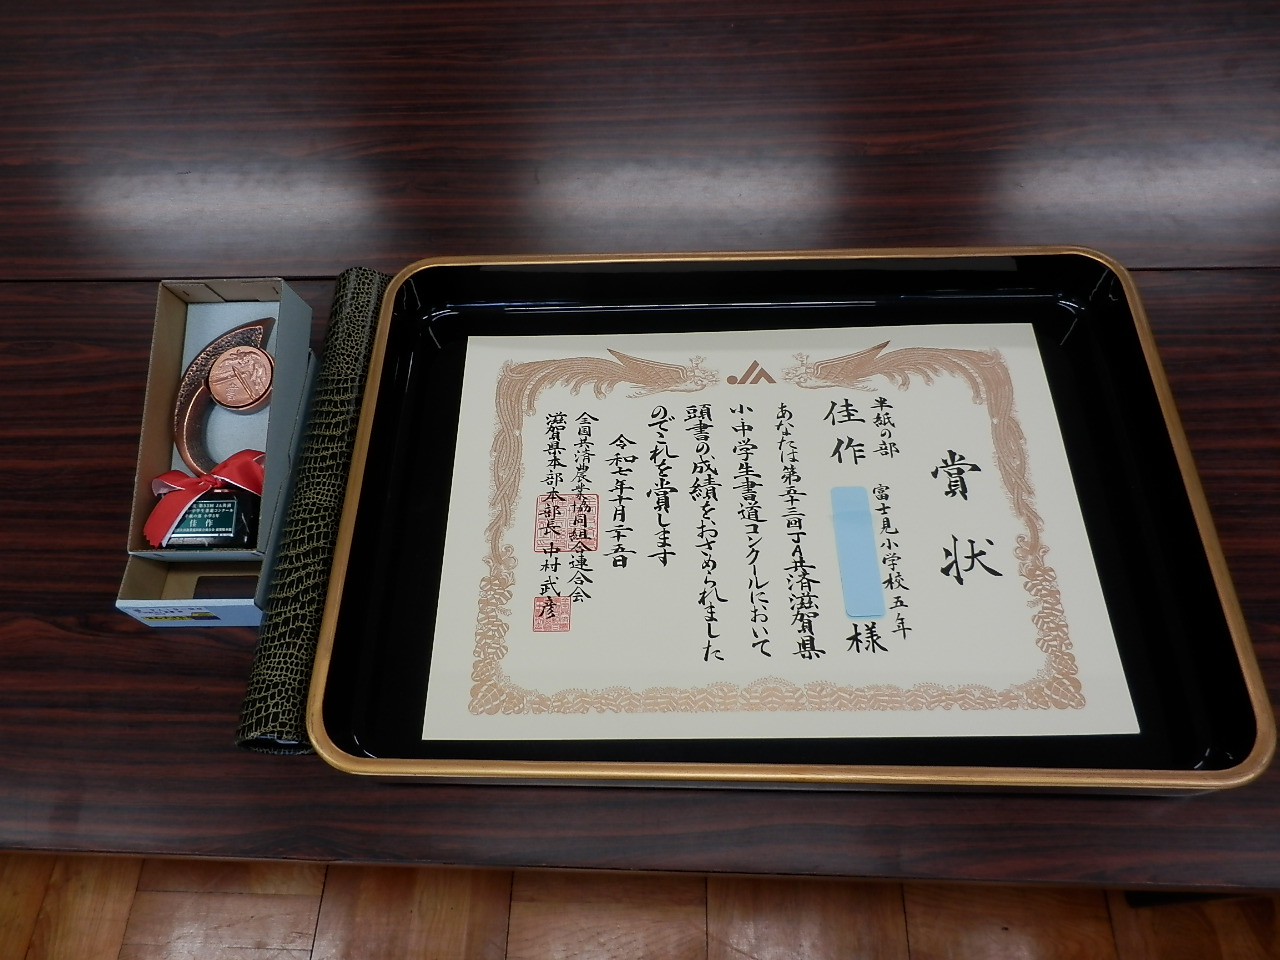 賞状
半紙の部 富士見小学校五年
佳作 様
あなたは第五十三回JA共済滋賀県
小・中学生書道コンクールにおいて
頭書の成績をおさめられました
のでこれを賞します
令和七年十月二十五日
全国共済農業協同組合連合会
滋賀県本部本部長 中村武彦
佳作